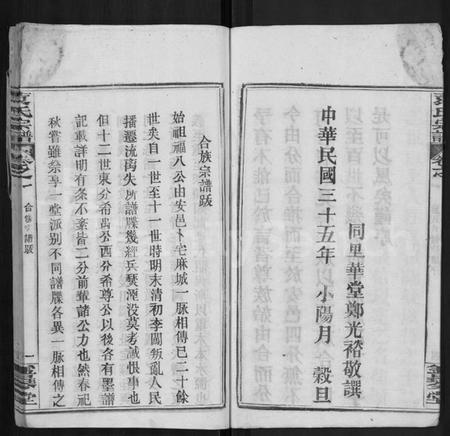 中華民國三十五年小陽月　穀旦
同里華堂鄭光褣敬譔
合族宗譜跋
始祖福八公由安邑卜宅麻城一脈相傳已二十餘
世矣自一世至十一世時明末清初李闖叛亂人民
播遷流離失所譜牒幾經兵燹湮沒莫考誠恨事也
但十二世東分希禹公西分希尊公以後各有墨譜
記載詳明有條不紊皆二分前輩諸公力也然春祀
秋嘗雖祭享一堂派別不同譜牒各異一脈相傳之
氏宗譜
卷之一
合族宗譜跋
一
堂